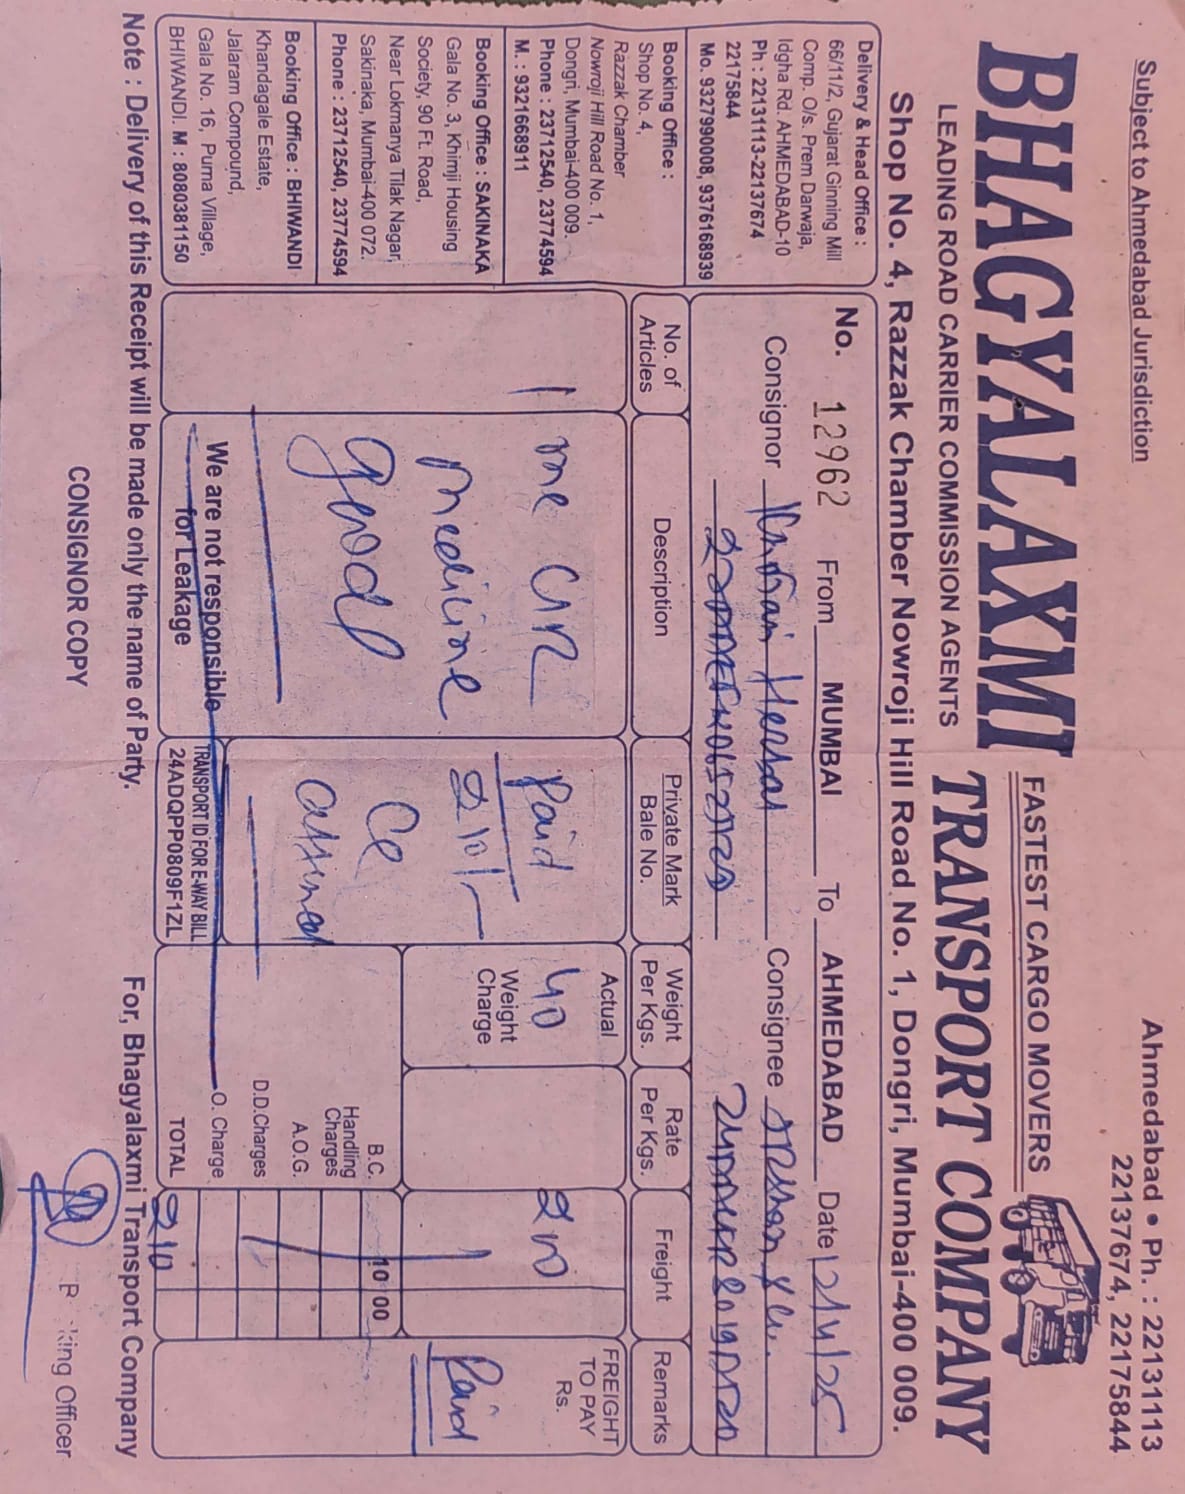 Subject to Ahmedabad Jurisdiction
Ahmedabad • Ph. : 22131113
22137674, 22175844
BHAGYALAXMI
FASTEST CARGO MOVERS
TRANSPORT COMPANY
LEADING ROAD CARRIER COMMISSION AGENTS
Shop No. 4, Razzak Chamber Nowroji Hill Road No. 1, Dongri, Mumbai-400 009.
Delivery & Head Office :
66/11/2, Gujarat Ginning Mill
Comp. O/s. Prem Darwaja,
Idgha Rd. AHMEDABAD-10
Ph : 22131113-22137674
22175844
Mo. 9327990008, 9376168939
Booking Office :
Shop No. 4,
Razzak Chamber
Nowroji Hill Road No. 1,
Dongri, Mumbai-400 009.
Phone : 23712540, 23774594
M. : 9321668911
Booking Office : SAKINAKA
Gala No. 3, Khimji Housing
Society, 90 Ft. Road,
Near Lokmanya Tilak Nagar,
Sakinaka, Mumbai-400 072.
Phone : 23712540, 23774594
Booking Office : BHIWANDI
Khandagale Estate,
Jalaram Compound,
Gala No. 16, Purna Village,
BHIWANDI. M : 8080381150
No. 12962 From MUMBAI To AHMEDABAD Date 12/4/25
Consignor Consignee
No. of Articles
Description
Private Mark
Bale No.
Weight Per Kgs.
Rate Per Kgs.
Freight
Remarks
1
medicine
good
Paid
210/-
Actual
40
Weight Charge
200
FREIGHT TO PAY Rs.
Paid
B.C. 10 00
Handling Charges
A.O.G.
D.D.Charges
O. Charge
TOTAL 210
We are not responsible
for Leakage
TRANSPORT ID FOR E-WAY BILL
24ADQPP0809F1ZL
Note : Delivery of this Receipt will be made only the name of Party.
For, Bhagyalaxmi Transport Company
CONSIGNOR COPY
Officer